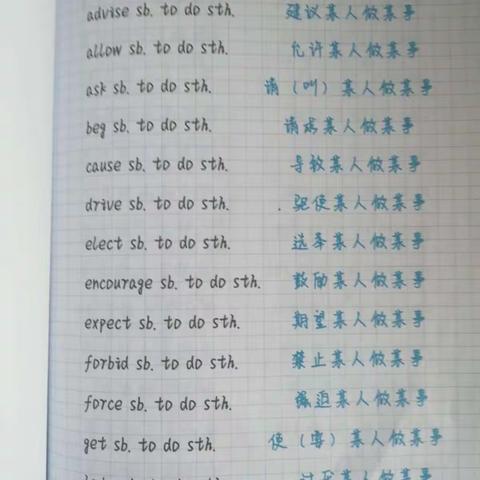 advise sb. to do sth. 建议某人做某事
allow sb. to do sth. 允许某人做某事
ask sb. to do sth. 请（叫）某人做某事
beg sb. to do sth. 请求某人做某事
cause sb. to do sth. 导致某人做某事
drive sb. to do sth. 驱使某人做某事
elect sb. to do sth. 选举某人做某事
encourage sb. to do sth. 鼓励某人做某事
expect sb. to do sth. 期望某人做某事
forbid sb. to do sth. 禁止某人做某事
force sb. to do sth. 强迫某人做某事
get sb. to do sth. 使（要）某人做某事